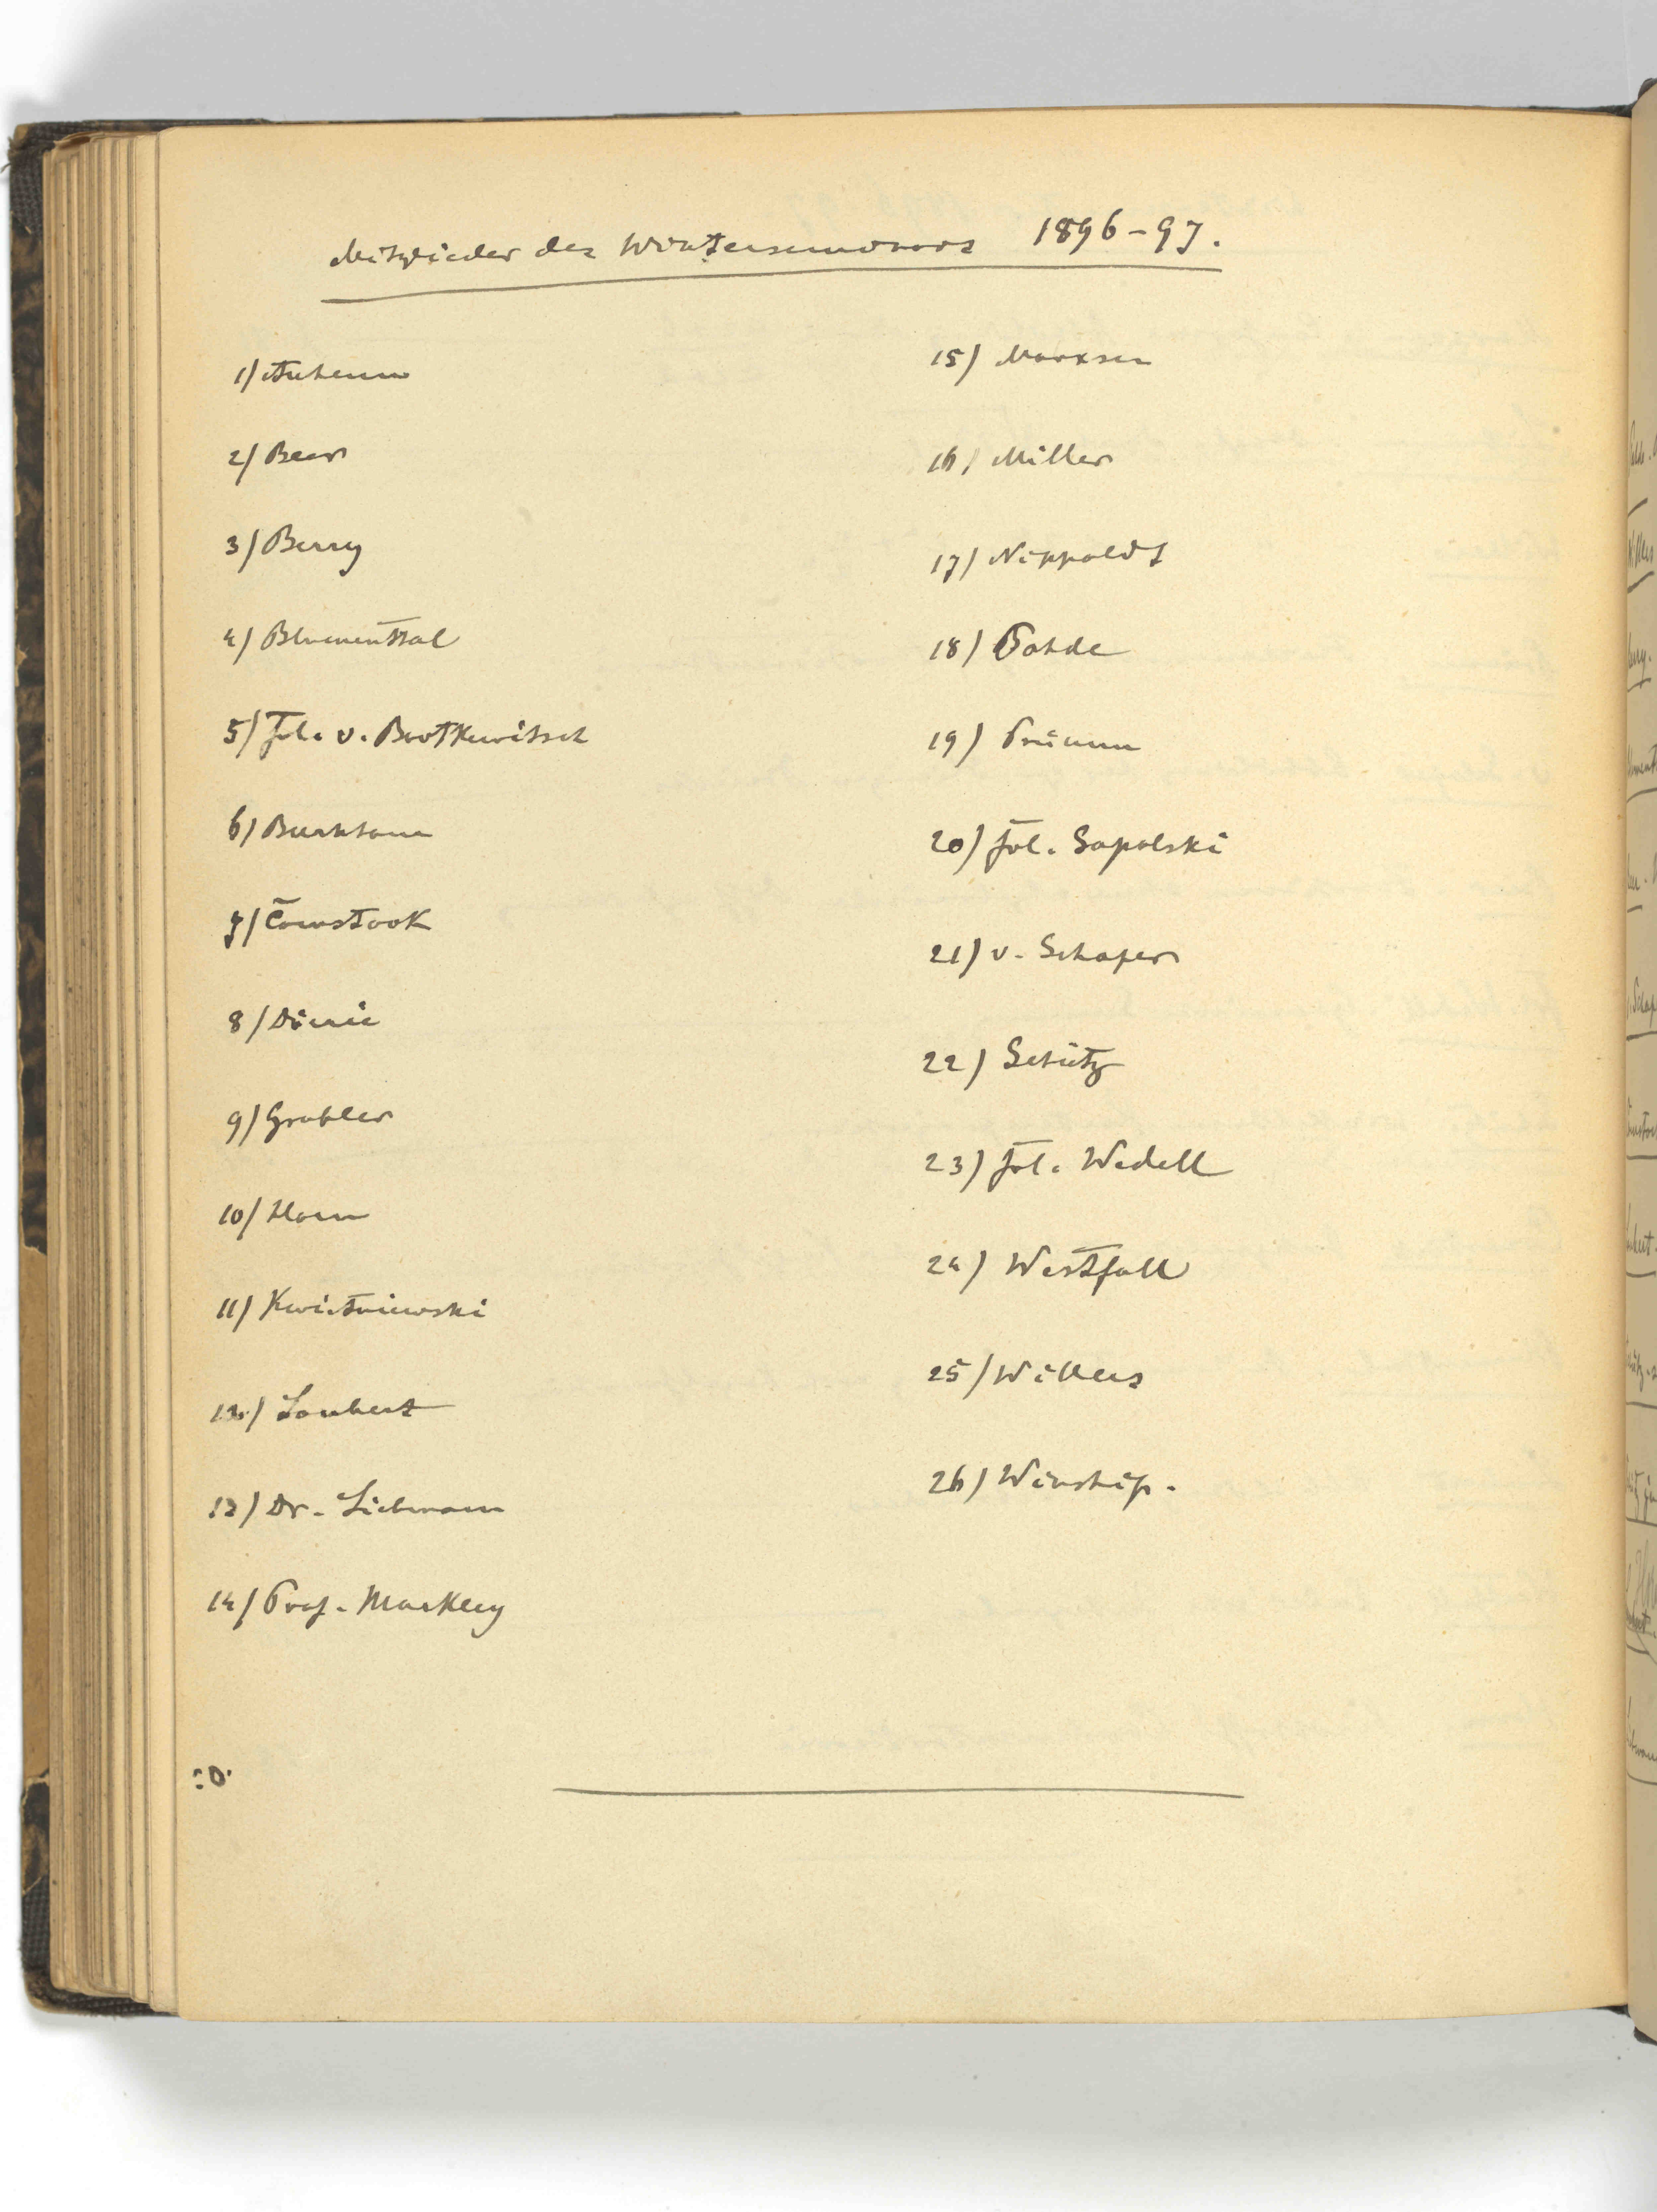 Mitglieder des Winterseminars 1896-97.
1)
2) Beer
3) Berry
4) Blumenthal
5) Frl. v. Bortkewitsch
6)
7) Comstock
8)
9) Grabler
10) Horn
11) Kwietniewski
12) Laubert
13) Dr. Liebmann
14) Prof. Markley
15) Marxsen
16) Miller
17) Nippoldt
18) Pohde
19) Prümm
20) Frl. Sapolski
21) v. Schaper
22) Schütz
23) Frl. Wedell
24) Westfall
25) Willers
26) Winship.